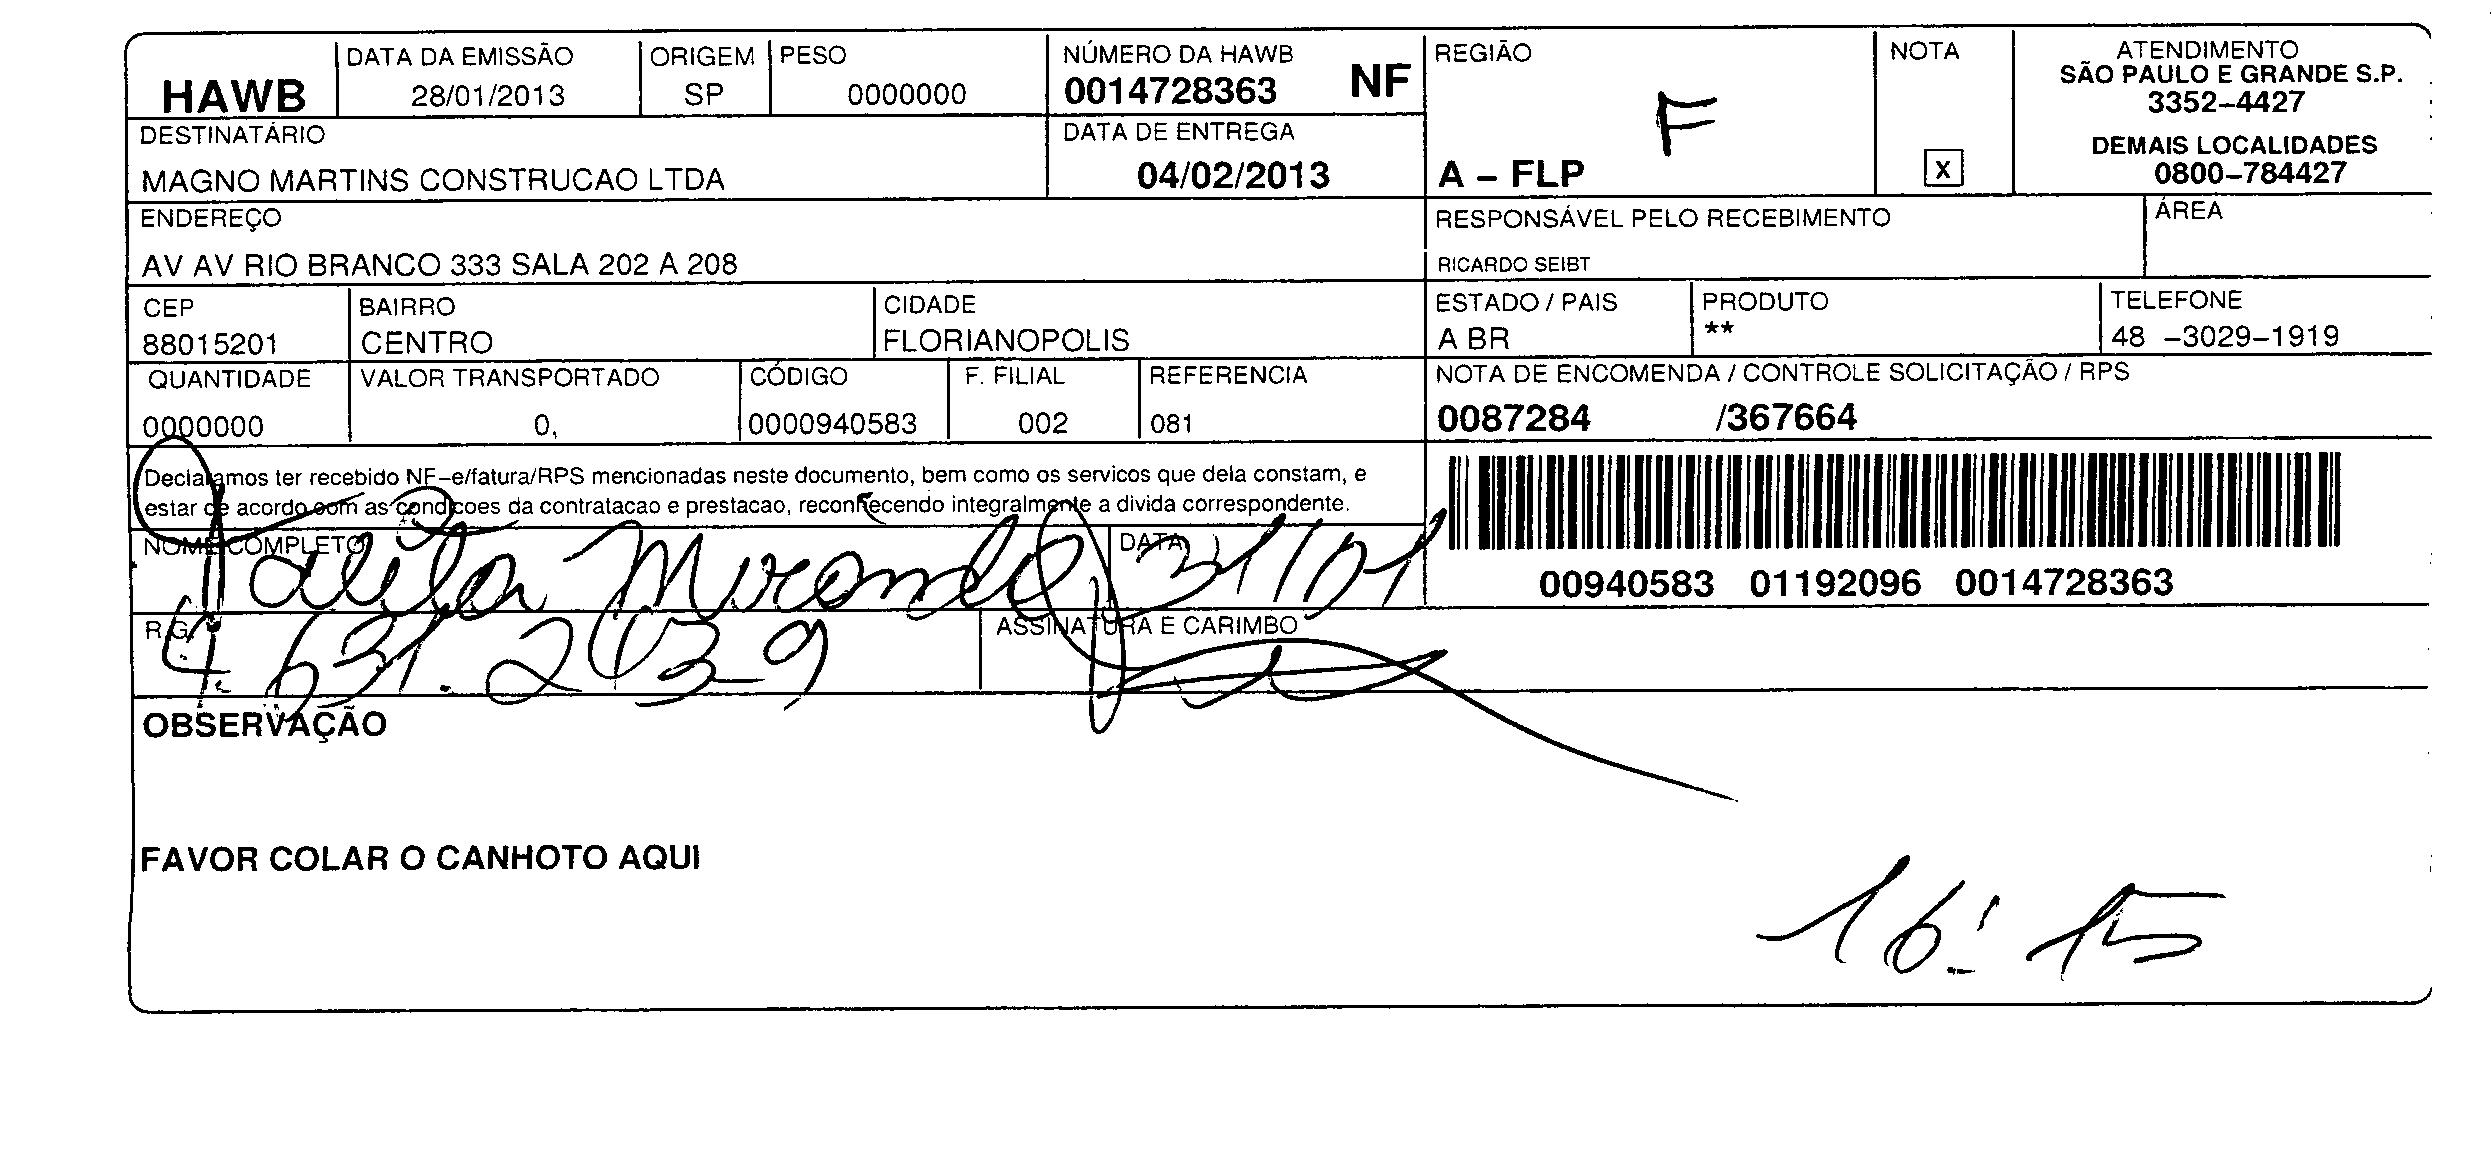 HAWB
DATA DA EMISSÃO
28/01/2013
ORIGEM
SP
PESO
0000000
NÚMERO DA HAWB
0014728363 NF
REGIÃO
F
A – FLP
NOTA
X
ATENDIMENTO
SÃO PAULO E GRANDE S.P.
3352–4427
DEMAIS LOCALIDADES
0800–784427
DESTINATÁRIO
MAGNO MARTINS CONSTRUCAO LTDA
DATA DE ENTREGA
04/02/2013
ENDEREÇO
AV AV RIO BRANCO 333 SALA 202 A 208
RESPONSÁVEL PELO RECEBIMENTO
RICARDO SEIBT
ÁREA
CEP
88015201
BAIRRO
CENTRO
CIDADE
FLORIANOPOLIS
ESTADO / PAIS
A BR
PRODUTO
**
TELEFONE
48 –3029–1919
QUANTIDADE
0000000
VALOR TRANSPORTADO
0,
CÓDIGO
0000940583
F. FILIAL
002
REFERENCIA
081
NOTA DE ENCOMENDA / CONTROLE SOLICITAÇÃO / RPS
0087284 /367664
Declaramos ter recebido NF–e/fatura/RPS mencionadas neste documento, bem como os servicos que dela constam, e
estar de acordo com as condicoes da contratacao e prestacao, reconhecendo integralmente a divida correspondente.
00940583 01192096 0014728363
NOME COMPLETO
Talita Miranda
DATA
31/01
R.G.
4.631.213-9
ASSINATURA E CARIMBO
OBSERVAÇÃO
FAVOR COLAR O CANHOTO AQUI
16:15